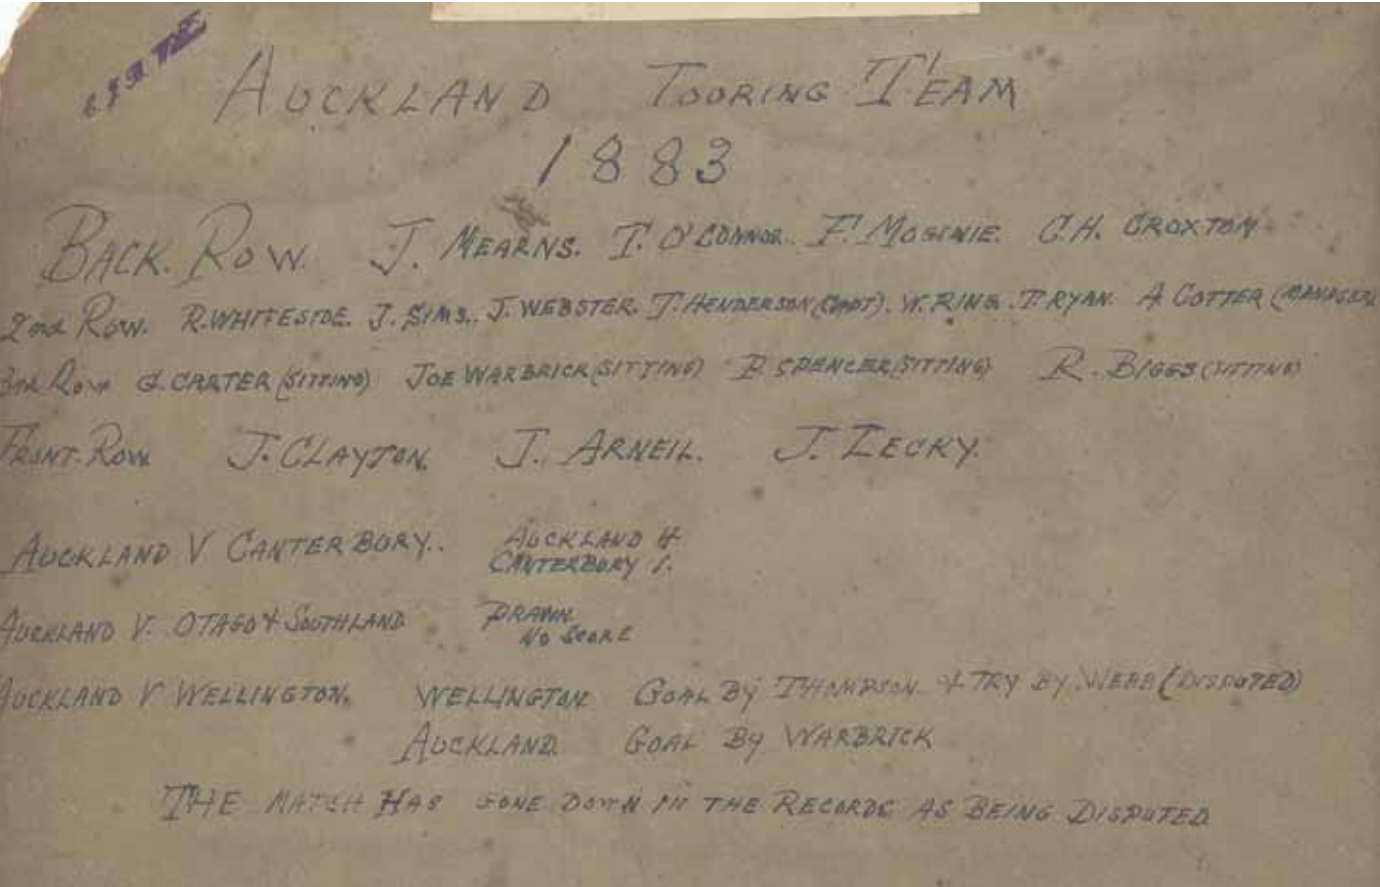 AUCKLAND TOURING TEAM
1883
BACK. ROW. J. MEARNS. T. O'CONNOR. F. MOGINIE. C.H. CROXTON
2nd ROW. R. WHITESIDE. J. SIMS. J. WEBSTER. T. HENDERSON (CAPT). W. RING. T. RYAN. A. COTTER (MANAGER)
3rd ROW G. CARTER (SITTING) JOE WARBRICK (SITTING) P. SPENCER (SITTING) R. BIGGS (SITTING)
FRONT. ROW. J. CLAYTON. J. ARNEIL. J. LECKY.
AUCKLAND V CANTERBURY.. AUCKLAND 4
CANTERBURY 1.
AUCKLAND V. OTAGO & SOUTHLAND DRAWN
NO SCORE
AUCKLAND V WELLINGTON. WELLINGTON GOAL BY THOMPSON. & TRY BY WEBB (DISPUTED)
AUCKLAND. GOAL BY WARBRICK
THE MATCH HAS GONE DOWN IN THE RECORDS AS BEING DISPUTED